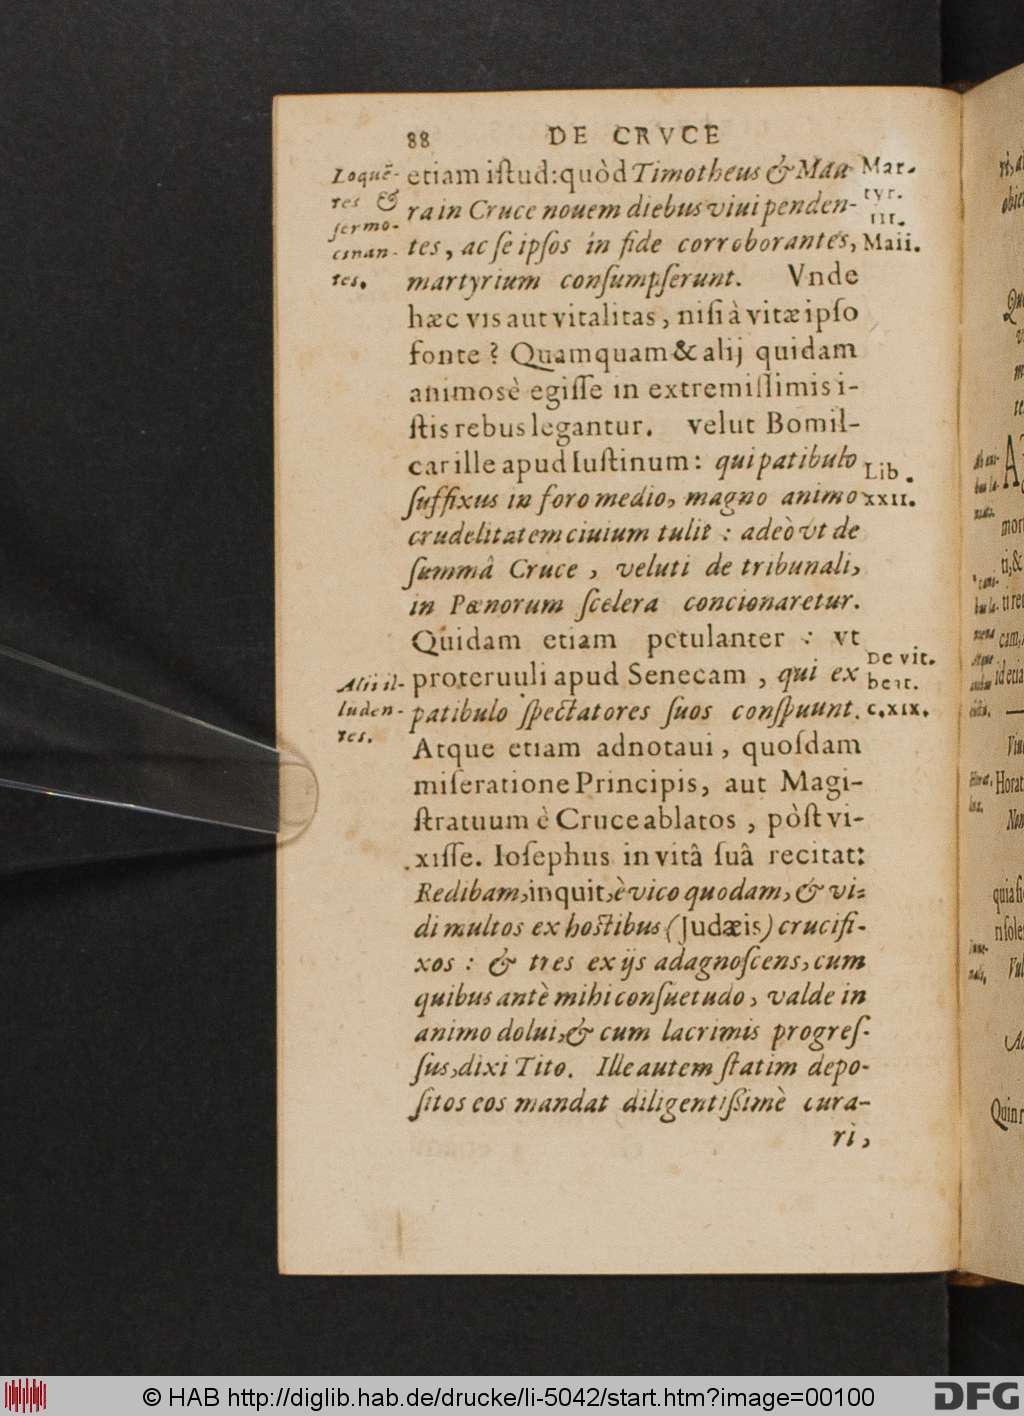 88 DE CRVCE
etiam istud: quòd Timotheus & Maa-
ra in Cruce nouem diebus viui penden-
tes, ac se ipsos in fide corroborantes,
martyrium consumpserunt. Vnde
hæc vis aut vitalitas, nisi à vitæ ipso
fonte? Quamquam & alij quidam
animosè egisse in extremissimis i-
stis rebus legantur. velut Bomil-
car ille apud Iustinum: qui patibulo
suffixus in foro medio, magno animo
crudelitatem ciuium tulit: adeò vt de
summâ Cruce, veluti de tribunali,
in Pœnorum scelera concionaretur.
Quidam etiam petulanter: vt
proteruuli apud Senecam, qui ex
patibulo spectatores suos conspuunt.
Atque etiam adnotaui, quosdam
miseratione Principis, aut Magi-
stratuum è Cruce ablatos, pòst vi-
xisse. Iosephus in vitâ suâ recitat:
Redibam, inquit, è vico quodam, & vi-
di multos ex hostibus (Judæis) crucifi-
xos: & tres ex ijs adagnoscens, cum
quibus antè mihi consuetudo, valde in
animo dolui, & cum lacrimis progres-
sus, dixi Tito. Ille autem statim depo-
sitos eos mandat diligentissimè cura-
ri,
Loquē-
tes &
sermo-
cinan-
tes.
Alii il-
luden-
tes.
Mar-
tyr.
III.
Maii.
Lib.
XXII.
De vit.
beat.
c. XIX.
© HAB http://diglib.hab.de/drucke/li-5042/start.htm?image=00100
DFG